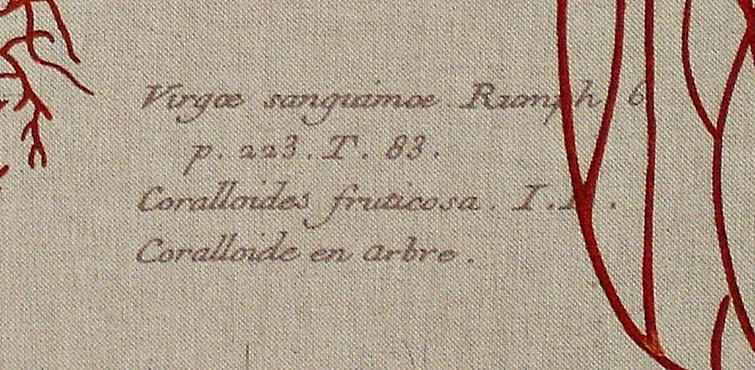 Virgœ sanguimœ. Rumph 6.
p. 223. T. 83.
Coralloides fruticosa. I.
Coralloide en arbre.